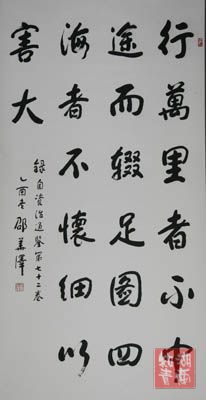 行萬里者不中
途而辍足圖四
海者不懷細以
害大
錄自資治通鑒第七十二卷
乙酉冬邵华澤